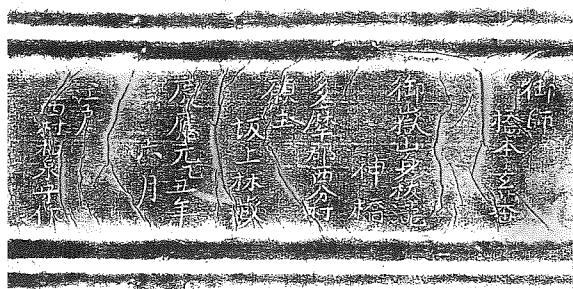 御師
橋本玄蕃
御嶽山
神橋
多摩郡西分村
願主
坂上林蔵
慶應元丑年
六月
江戸
西村和泉守作